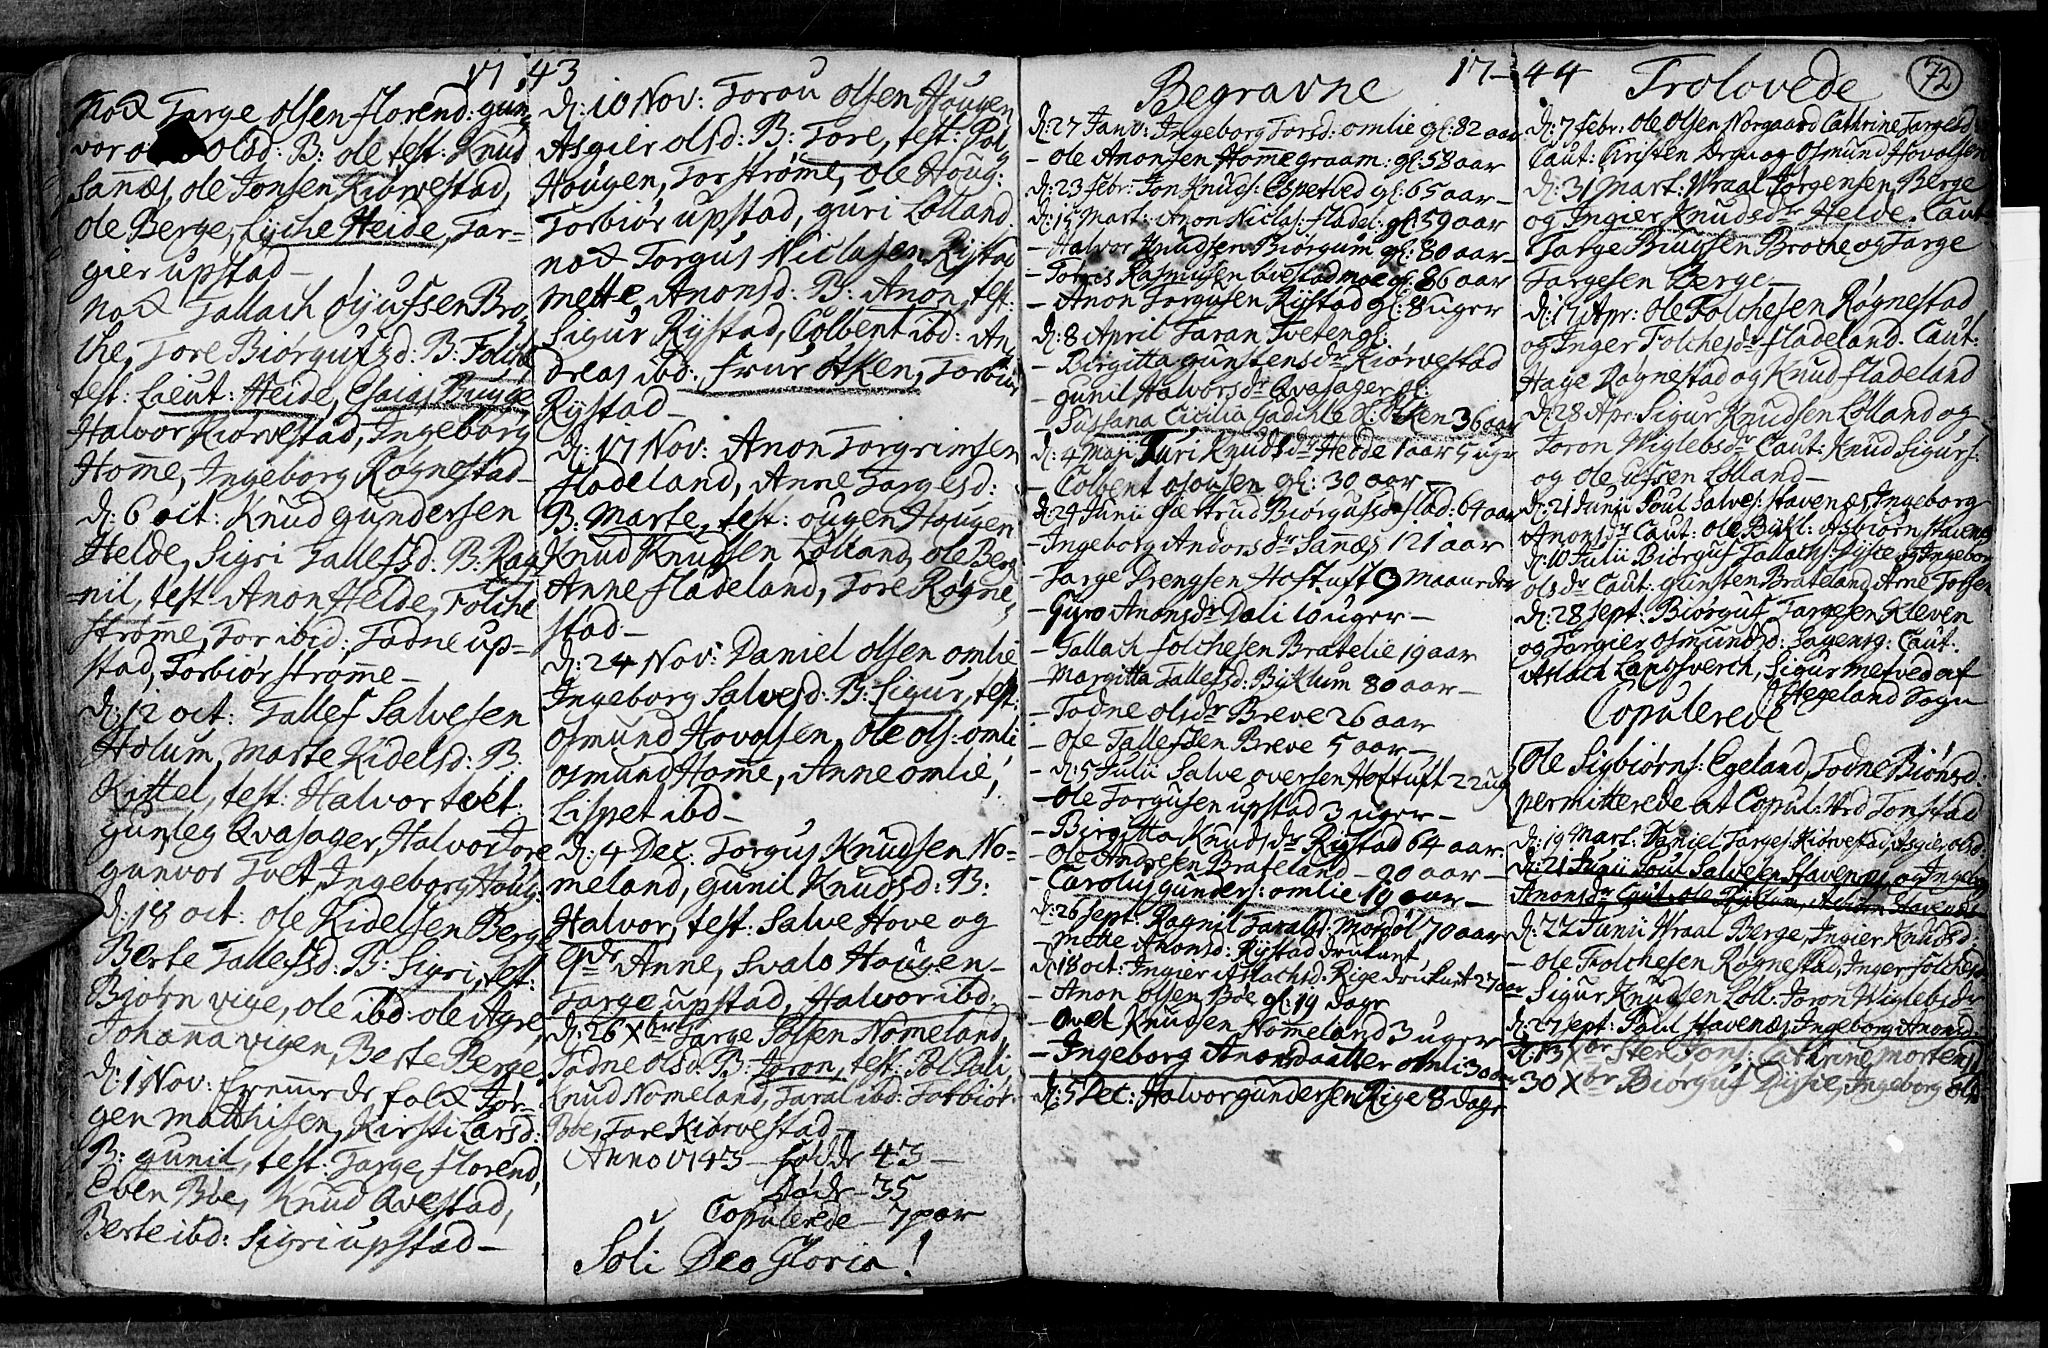 17 43
nod Targe Olsen florend: gun
vor Olsd: B: ole test: Knud
Sannes, ole Jonsen, Kiørvestad,
ole Berge, Lyche Heide, Tar-
gier upstad—
nod Tallach Bro
the, Tore Biørgufsd: B:
test: Lieut: Heide, Esaias Bugge
Halvor Kiørvestad, Ingeborg
Homme, Ingeborg Rognestad—
d: 6 oct: Knud gundersen
Helde, Sigri Tallefsd: B: Rag
nil, test Anon Helde, Folche
Strømme, Tor ibid: Todne up-
stad, Torbiør Strømme—
d: 12 oct: Tallef Salvesen
Holum, Marte Kidelsd: B.
Kittel, test: Halvor tvet
gunleg Qvasager, Halvor Tore
gunvor Tvet, Ingeborg Houg:
d: 18 oct: ole Kidelsen Berge
Berte Tallefsd: B: Sigri, test:
Bjørn vige, ole ibd: ole Agre,
Johana vigen, Berte Berge
d: 1 Nov: fremede folk Jør-
gen Mathisen, Kirsti Larsd:
B: gunil, test: Targe florend,
Even Bøe, Knud Qvestad,
Berte ibd: Sigri upstad—
d: 10 Nov: Torou Olsen Hougen
Asgier olsd: B: Tore, test: Pol
Hougen, Tor Strømme, ole Houg:
Torbiør upstad, guri Lolland
nod Torgus Niclasen Rystad
Mette Anonsd: B: Anon, test:
Sigur Rystad, Colbent ibd: An
dreas ibd: frur Øtken, Torbiør
Rystad—
d: 17 Nov: Anon Torgrimsen
fladeland, Anne Targesd:
B: Marte, test: ougen Hougen
Knud Knudsen Lolland, ole Berg
Anne fladeland, Tore Rogne
stad—
d: 24 Nov: Daniel olsen omlie
Ingeborg Salvesd: B: Sigur, test:
osmund Hovolsen, ole ols: omli
osmund Homme, Anne omlie,
Lispet ibd—
d: 4 Dec: Torgus Knudsen No=
meland, gunil Knudsd: B:
Halvor, test: Salve Hove og
Anne, Svalo Hougen—
Targe upstad, Halvor ibd:
d: 26 Xbr Targe Polsen Nomeland,
Todne olsd: B: Joron, test: Pol Dali,
Knud Nomeland, Taral ibd: Torbiør
Bøe, Tore Kiørvestad—
Anno 1743 — fødde 43—
Døde—35
Copulerede—7 par
Soli Deo Gloria!
17-44
Begravne
d: 27 Janv: Ingeborg Torsd: omlie gl: 82 aar
— Ole Anonsen Homme graam: gl: 58 aar
d: 23 febr: Jon Knuds: Espetved gl: 65 aar—
d: 15 Mart: Anon Niclas: fladel: gl 59 aar
— Halvor Knudsen Biørgum gl: 80 aar—
— Rasmusen gl: 86 aar
— Anon Torgusen Rystad gl: 8 uger
d: 8 April Taran Tveten gl:
— Birgitta gunstensdr Kiørvestad
— gunil Halvorsdr Qvasager gl:
— Sussana Cicilia 36 aar
d: 4 Maji Turi Knudsdr Hedde 1 aar
— Colbent gl: 30 aar—
d: 24 Junii Biørgufsd 64 aar
— Ingeborg Andorsdr Sannes 121 aar
— Targe Drengsen Hoftuft 9 maaneder
— Guro Anonsdr Dali 10 uger—
— Tallach folchesen Bratelie 19 aar
— Margitta Tallefsd: Byklum 80 aar—
— Todne olsdr Breve 26 aar
— Ole Tallefsen Breve 5 aar—
— d: 5 Julii Salve oversen Hoftuft 22 ug
— Ole Torgusen upstad 3 uger—
— Birgitta Knudsdr Rystad 64 aar:
— Ole Andresen Brateland — 90 aar—
— Carolus gunders: omlie 19 aar—
d: 26 Sept: Ragnil Taralsd: Mosdøl 70 aar
— Mette Anonsd: Rystad druknt
d: 18 oct: Ingier Aslachsd: Rige druknet 27 aar
— Anon olsen Bøe gl: 19 dage
— Ovel Knudsen Nomeland 3 uger
— Ingeborg Anonsdaatter omli 30 aar
d: 5 Dec: Halvor gundersen Rige 8 dage
Trolovede
72
d: 7 febr: ole olsen Norgaard Cathrine Targesd
Caut: Cristen og Osmund Hovolsen
d: 31 Mart: Wraal Jørgensen Berge
og Ingier Knudsdr Helde. Caut
Targe Biugsen Brothe og Targe
Targesen Berge—
d: 17 Apr: ole Folchesen Rognestad
og Inger Folchesdr fladeland. Caut:
Hage Rognestad og Knud fladeland
d: 28 Apr: Sigur Knudsen Lolland og
Joron Wiglebsdr Caut: Knud Sigurs:
og Ole Lolland—
d: 21 Junii Poul Salves: stavenes, Ingeborg
Anonsdr Caut: ole Bykl: Asbiørn stavenes
d: 10 Julii Biørguf Tallachs: Dysie og Ingebor
olsdr Caut: gunsten Brateland, Arne Tolfsen
d: 28 sept: Biørguf Targesen Kleven
og Targier osmundsd: Caut:
Aslach Landsverch, Sigur Metved af
Hegeland Sogn
Copulerede
Ole Sigbiørns: Egeland, Todne Biønsd:
permitterede at Copul: ved Tonstad
d: 19 Mart: Daniel Targes: Kiørvestad, Asgier olsd:
d: 21 Junii Poul Salvesen Stavenes og Ingebor
Anonsdr Caut: ole Byklum, Asbiørn Stavenes
d: 22 Junii Wraal Berge, Ingier Knudsd:
— Ole Folchesen Rognestad, Inger folchesd
— Sigur Knudsen Loll: Joron Wiglebsdr
d: 27 sept: Poul stavenes, Ingeborg Anonsd:
d: 13 Xbr Sten Jons: Cathrine Mortensd
— 30 Xbr Biørguf Dysie, Ingeborg ols